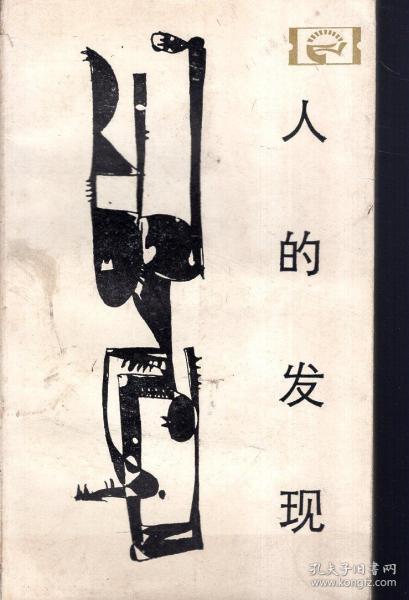 人的发现
孔夫子旧书网
www.kongfz.com